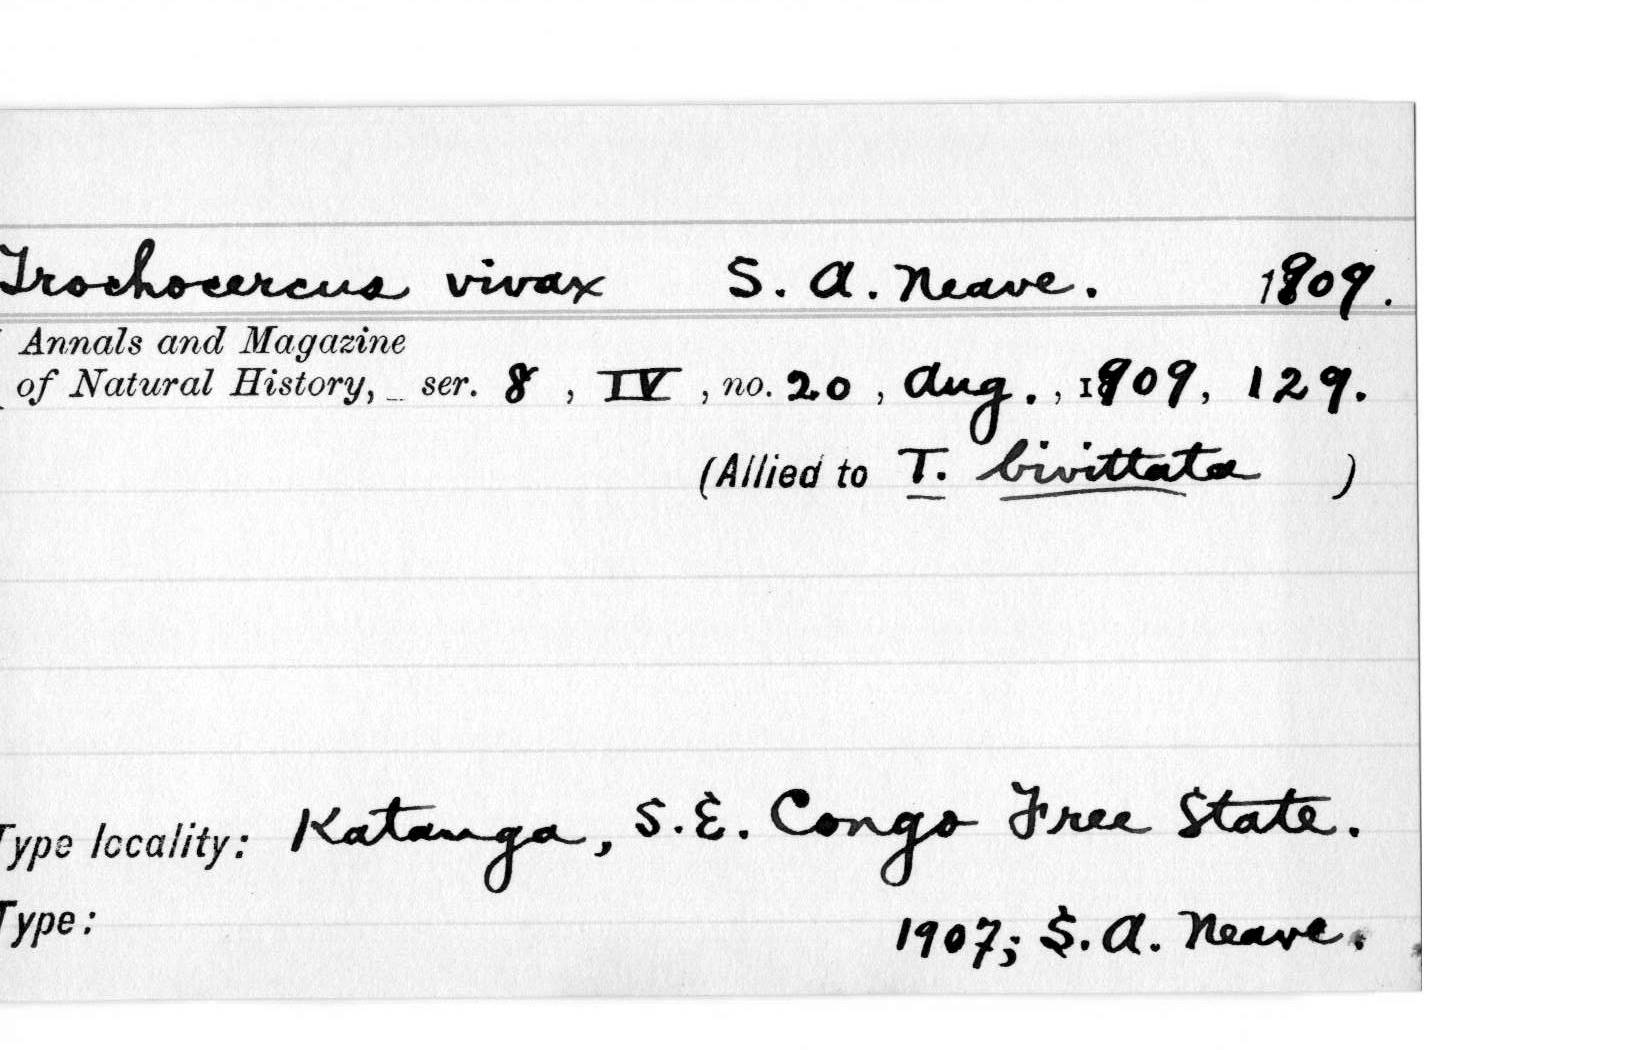 Trochocercus vivax S. A. Neave. 1909.
Annals and Magazine
of Natural History, _ ser. 8, IV, no. 20, Aug., 1909, 129.
(Allied to T. bivittata )
Type locality: Katanga, S.E. Congo Free State.
Type: 1907; S. A. Neave.